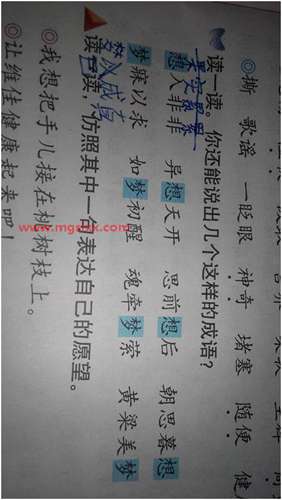 撕 歌谣 一眨眼 神奇 堵塞 随便 健
读一读。你还能说出几个这样的成语?
想入非非 异想天开 思前想后 朝思暮想
梦寐以求 如梦初醒 魂牵梦萦 黄粱美梦
梦 成真
读一读,仿照其中一句表达自己的愿望。
◎我想把手儿接在桃树枝上。
◎让维佳健康起来吧!